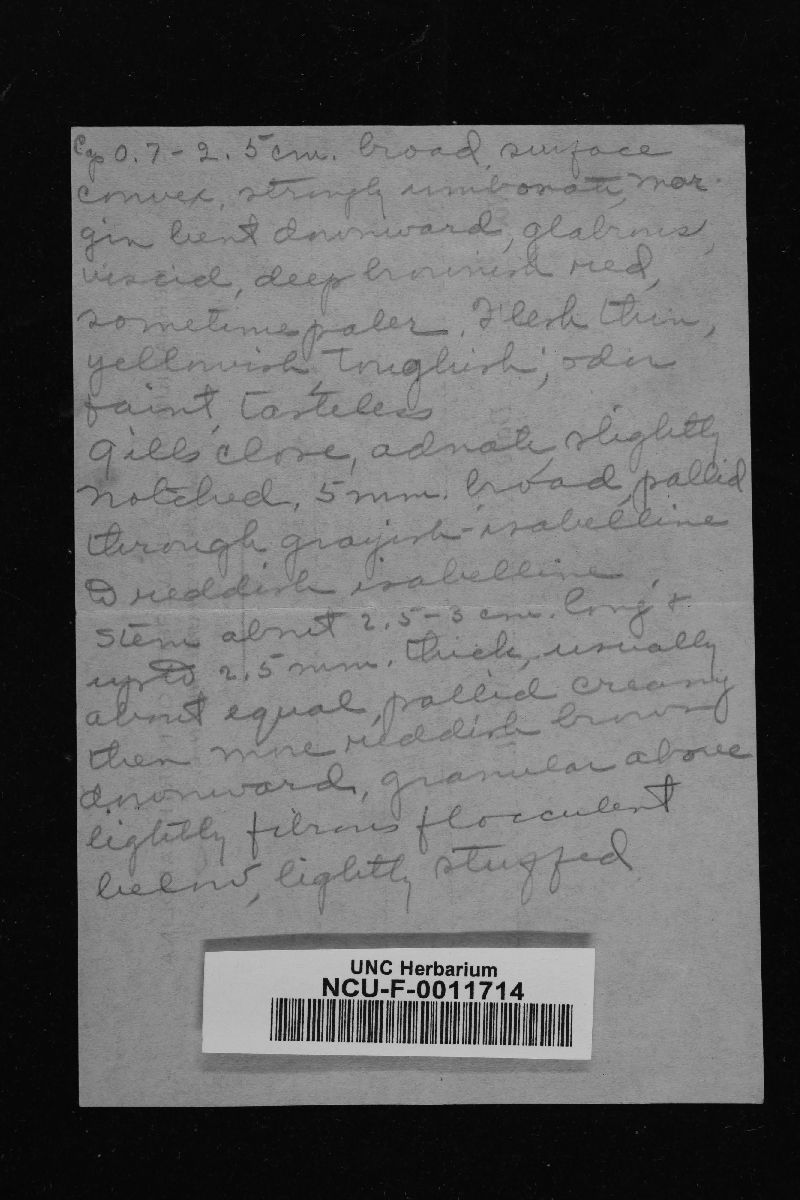 Cap 0.7 - 2.5 cm. broad, surface
convex, strongly umbonate, mar-
gin bent downward, glabrous,
viscid, deep brownish red,
sometimes paler. Flesh thin,
yellowish, toughish, odor
faint, tasteless
Gills close, adnate, slightly
notched, 5 mm. broad, pallid
through grayish-isabelline
to reddish isabelline.
Stem about 2.5-3 cm. long &
up to 2.5 mm. thick, usually
about equal, pallid creamy
then more reddish brown
downward, granular above
lightly fibrous flocculent
below, lightly stuffed
UNC Herbarium
NCU-F-0011714